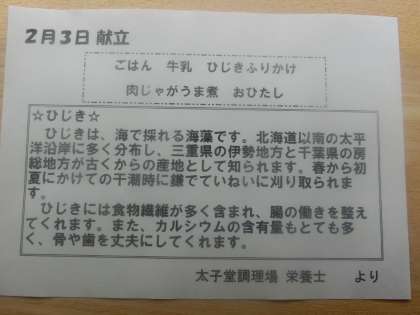 2月3日 献立
ごはん 牛乳 ひじきふりかけ
肉じゃがうま煮 おひたし
☆ひじき☆
ひじきは、海で採れる海藻です。北海道以南の太平
洋沿岸に多く分布し、三重県の伊勢地方と千葉県の房
総地方が古くからの産地として知られます。春から初
夏にかけての干潮時に鎌でていねいに刈り取られま
す。
ひじきには食物繊維が多く含まれ、腸の働きを整え
てくれます。また、カルシウムの含有量もとても多
く、骨や歯を丈夫にしてくれます。
太子堂調理場 栄養士 より